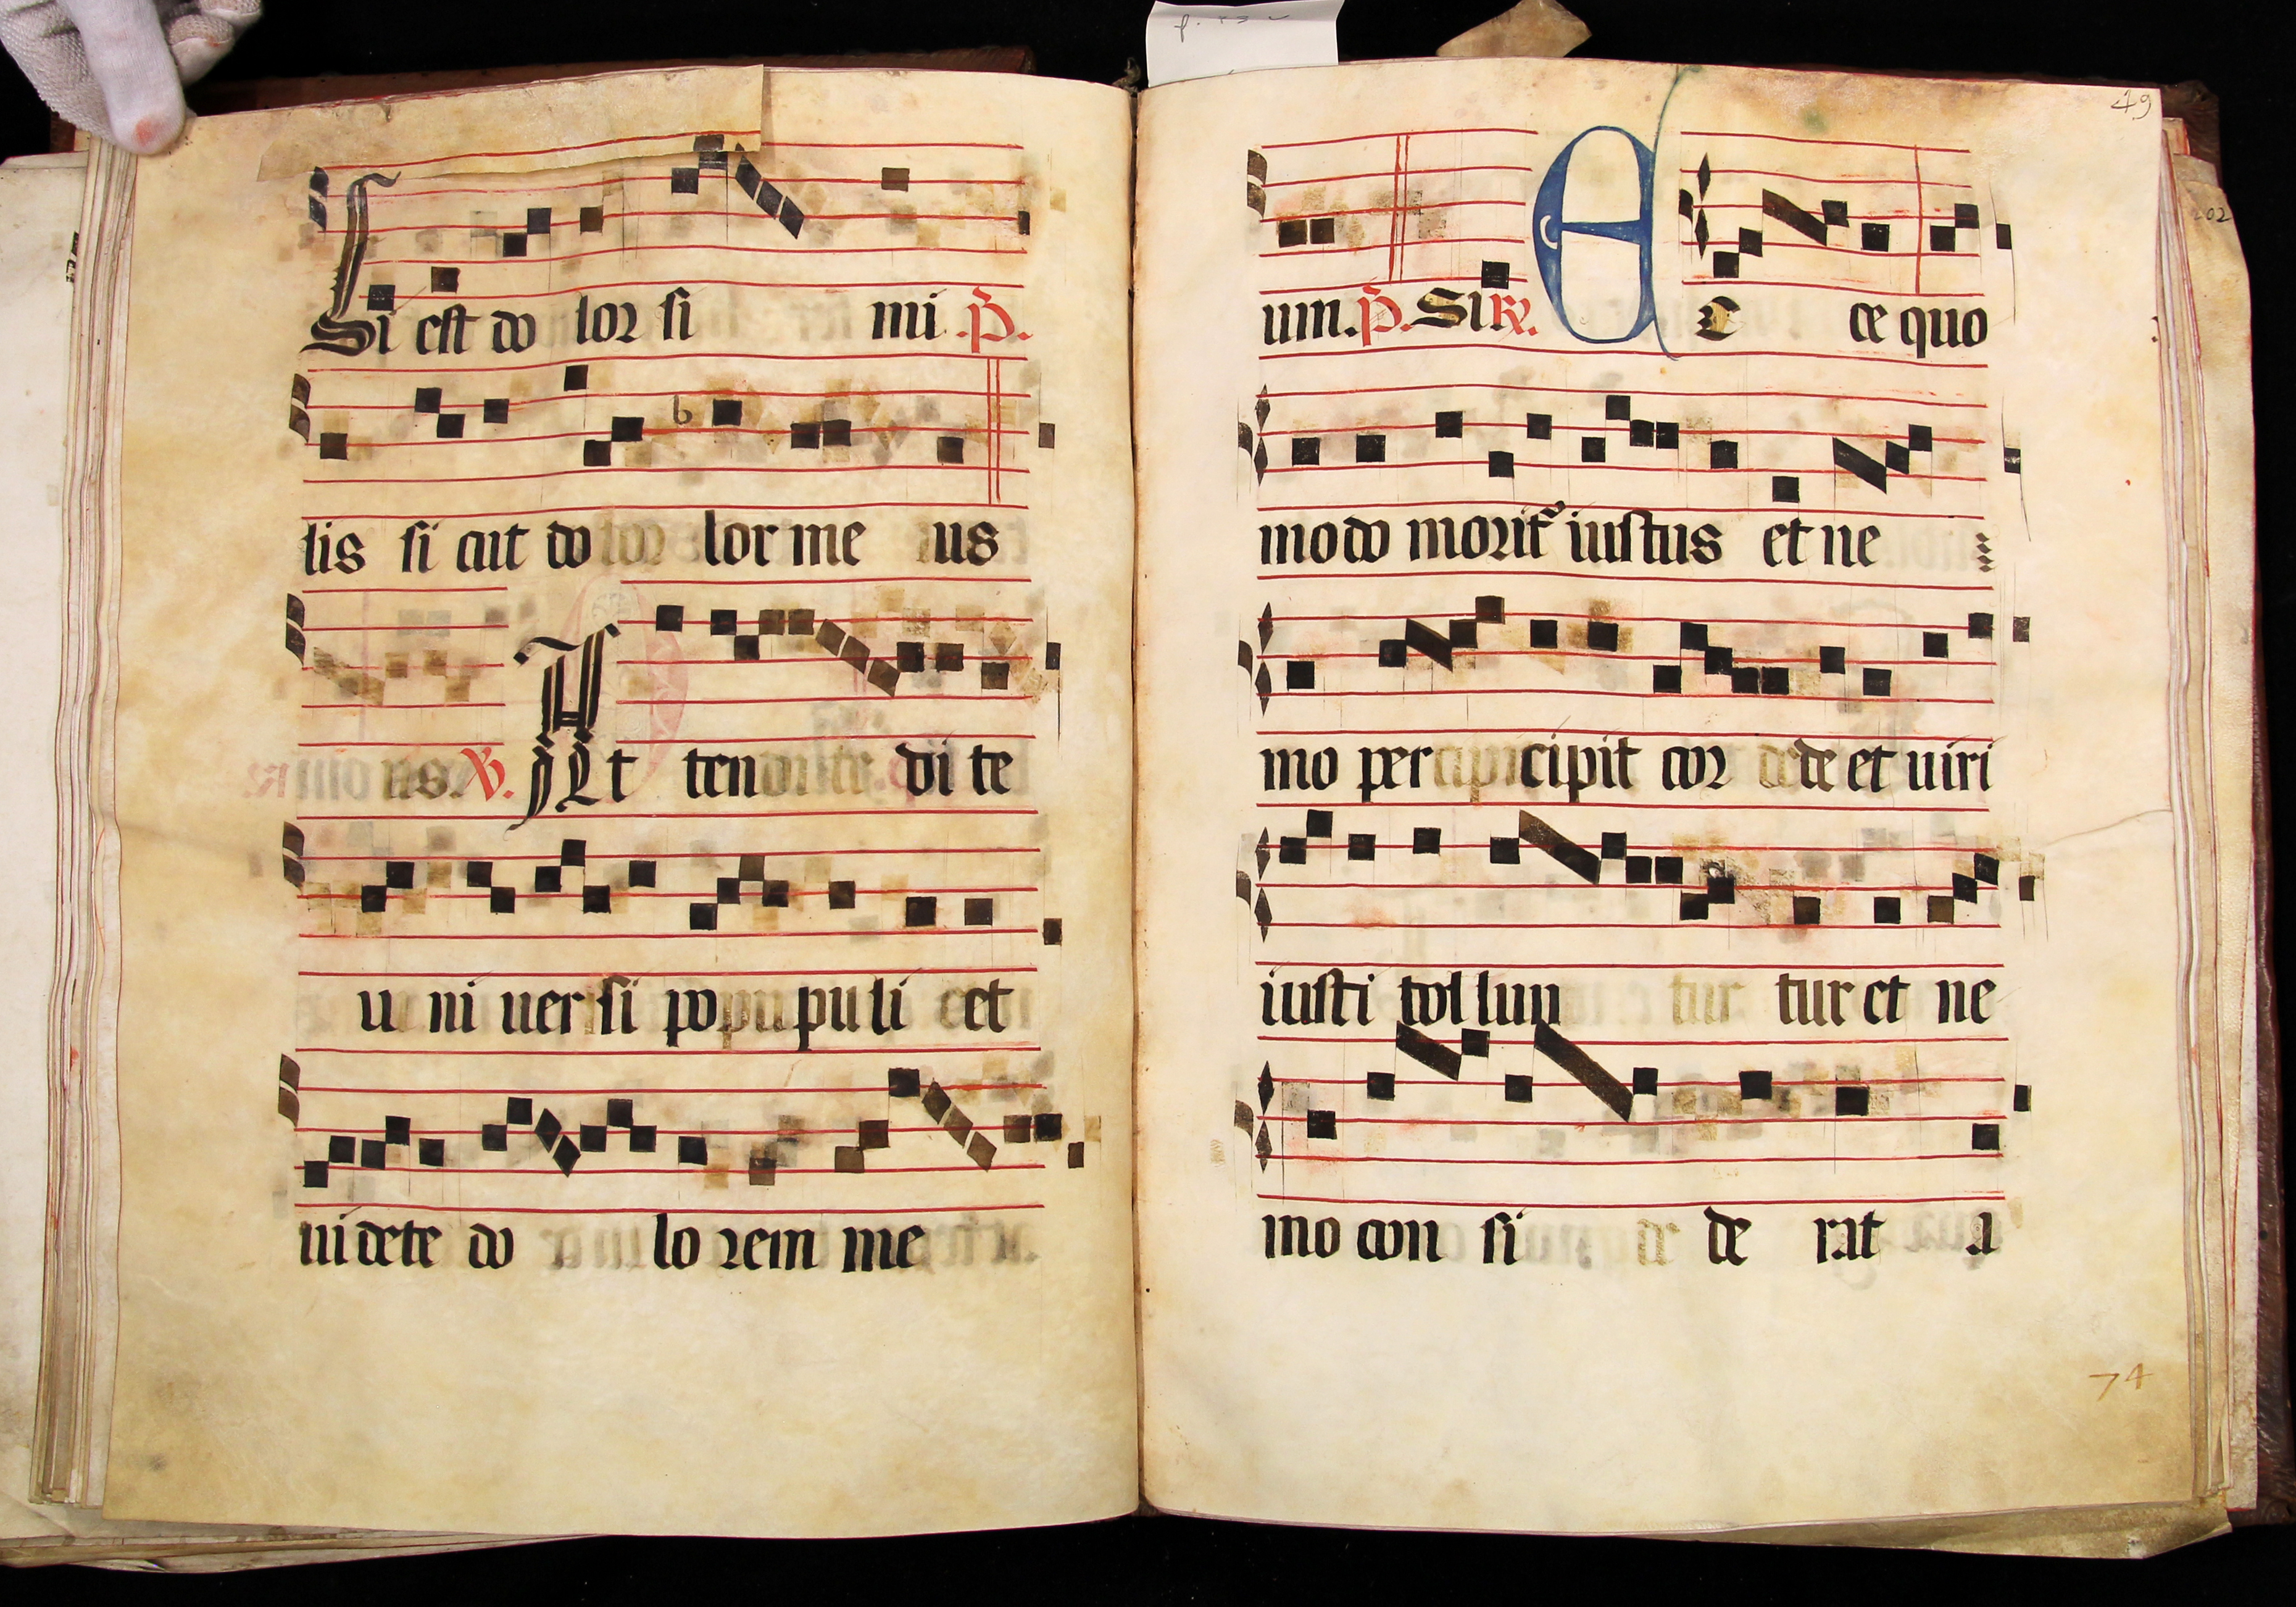 Si est do lor si mi .p̄.
lis si cut do lor me us
℣. At ten di te
u ni uer si po pu li et
ui dete do lo rem me
49
um. p̄. Si ℟. E C ce quo
modo morit² iustus et ne
mo per cipit cor de et uiri
iusti tol lun tur et ne
mo con si de rat a
74
202